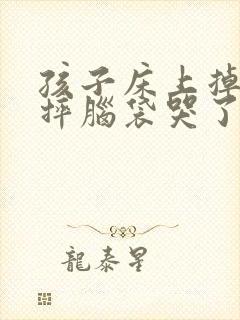 孩子床上掉
摔腦袋哭了
龍泰星